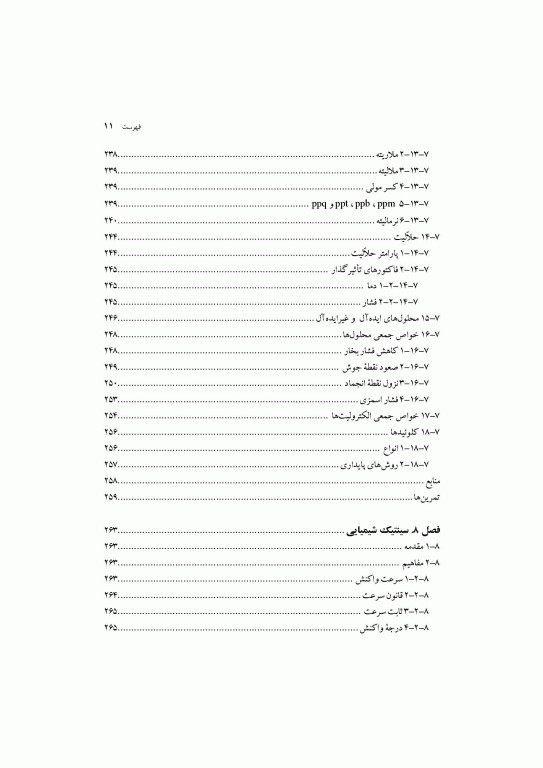 فهرست ۱۱
۷–۱۳–۲ ملاریته ........ ۲۳۸
۷–۱۳–۳ ملالیته ........ ۲۳۹
۷–۱۳–۴ کسر مولی ........ ۲۳۹
۷–۱۳–۵ ppm ، ppb ، ppt و ppq ........ ۲۳۹
۷–۱۳–۶ نرمالیته ........ ۲۴۰
۷–۱۴ حلاّلیت ........ ۲۴۴
۷–۱۴–۱ پارامتر حلاّلیت ........ ۲۴۴
۷–۱۴–۲ فاکتورهای تأثیرگذار ........ ۲۴۵
۷–۱۴–۲–۱ دما ........ ۲۴۵
۷–۱۴–۲–۲ فشار ........ ۲۴۵
۷–۱۵ محلول‌های ایده‌آل و غیرایده‌آل ........ ۲۴۶
۷–۱۶ خواص جمعی محلول‌ها ........ ۲۴۸
۷–۱۶–۱ کاهش فشار بخار ........ ۲۴۸
۷–۱۶–۲ صعود نقطهٔ جوش ........ ۲۴۹
۷–۱۶–۳ نزول نقطهٔ انجماد ........ ۲۵۰
۷–۱۶–۴ فشار اسمزی ........ ۲۵۳
۷–۱۷ خواص جمعی الکترولیت‌ها ........ ۲۵۴
۷–۱۸ کلوئیدها ........ ۲۵۶
۷–۱۸–۱ انواع ........ ۲۵۶
۷–۱۸–۲ روش‌های پایداری ........ ۲۵۷
منابع ........ ۲۵۸
تمرین‌ها ........ ۲۵۹
فصل ۸. سینتیک شیمیایی ........ ۲۶۳
۸–۱ مقدمه ........ ۲۶۳
۸–۲ مفاهیم ........ ۲۶۳
۸–۲–۱ سرعت واکنش ........ ۲۶۳
۸–۲–۲ قانون سرعت ........ ۲۶۴
۸–۲–۳ ثابت سرعت ........ ۲۶۵
۸–۲–۴ درجهٔ واکنش ........ ۲۶۵